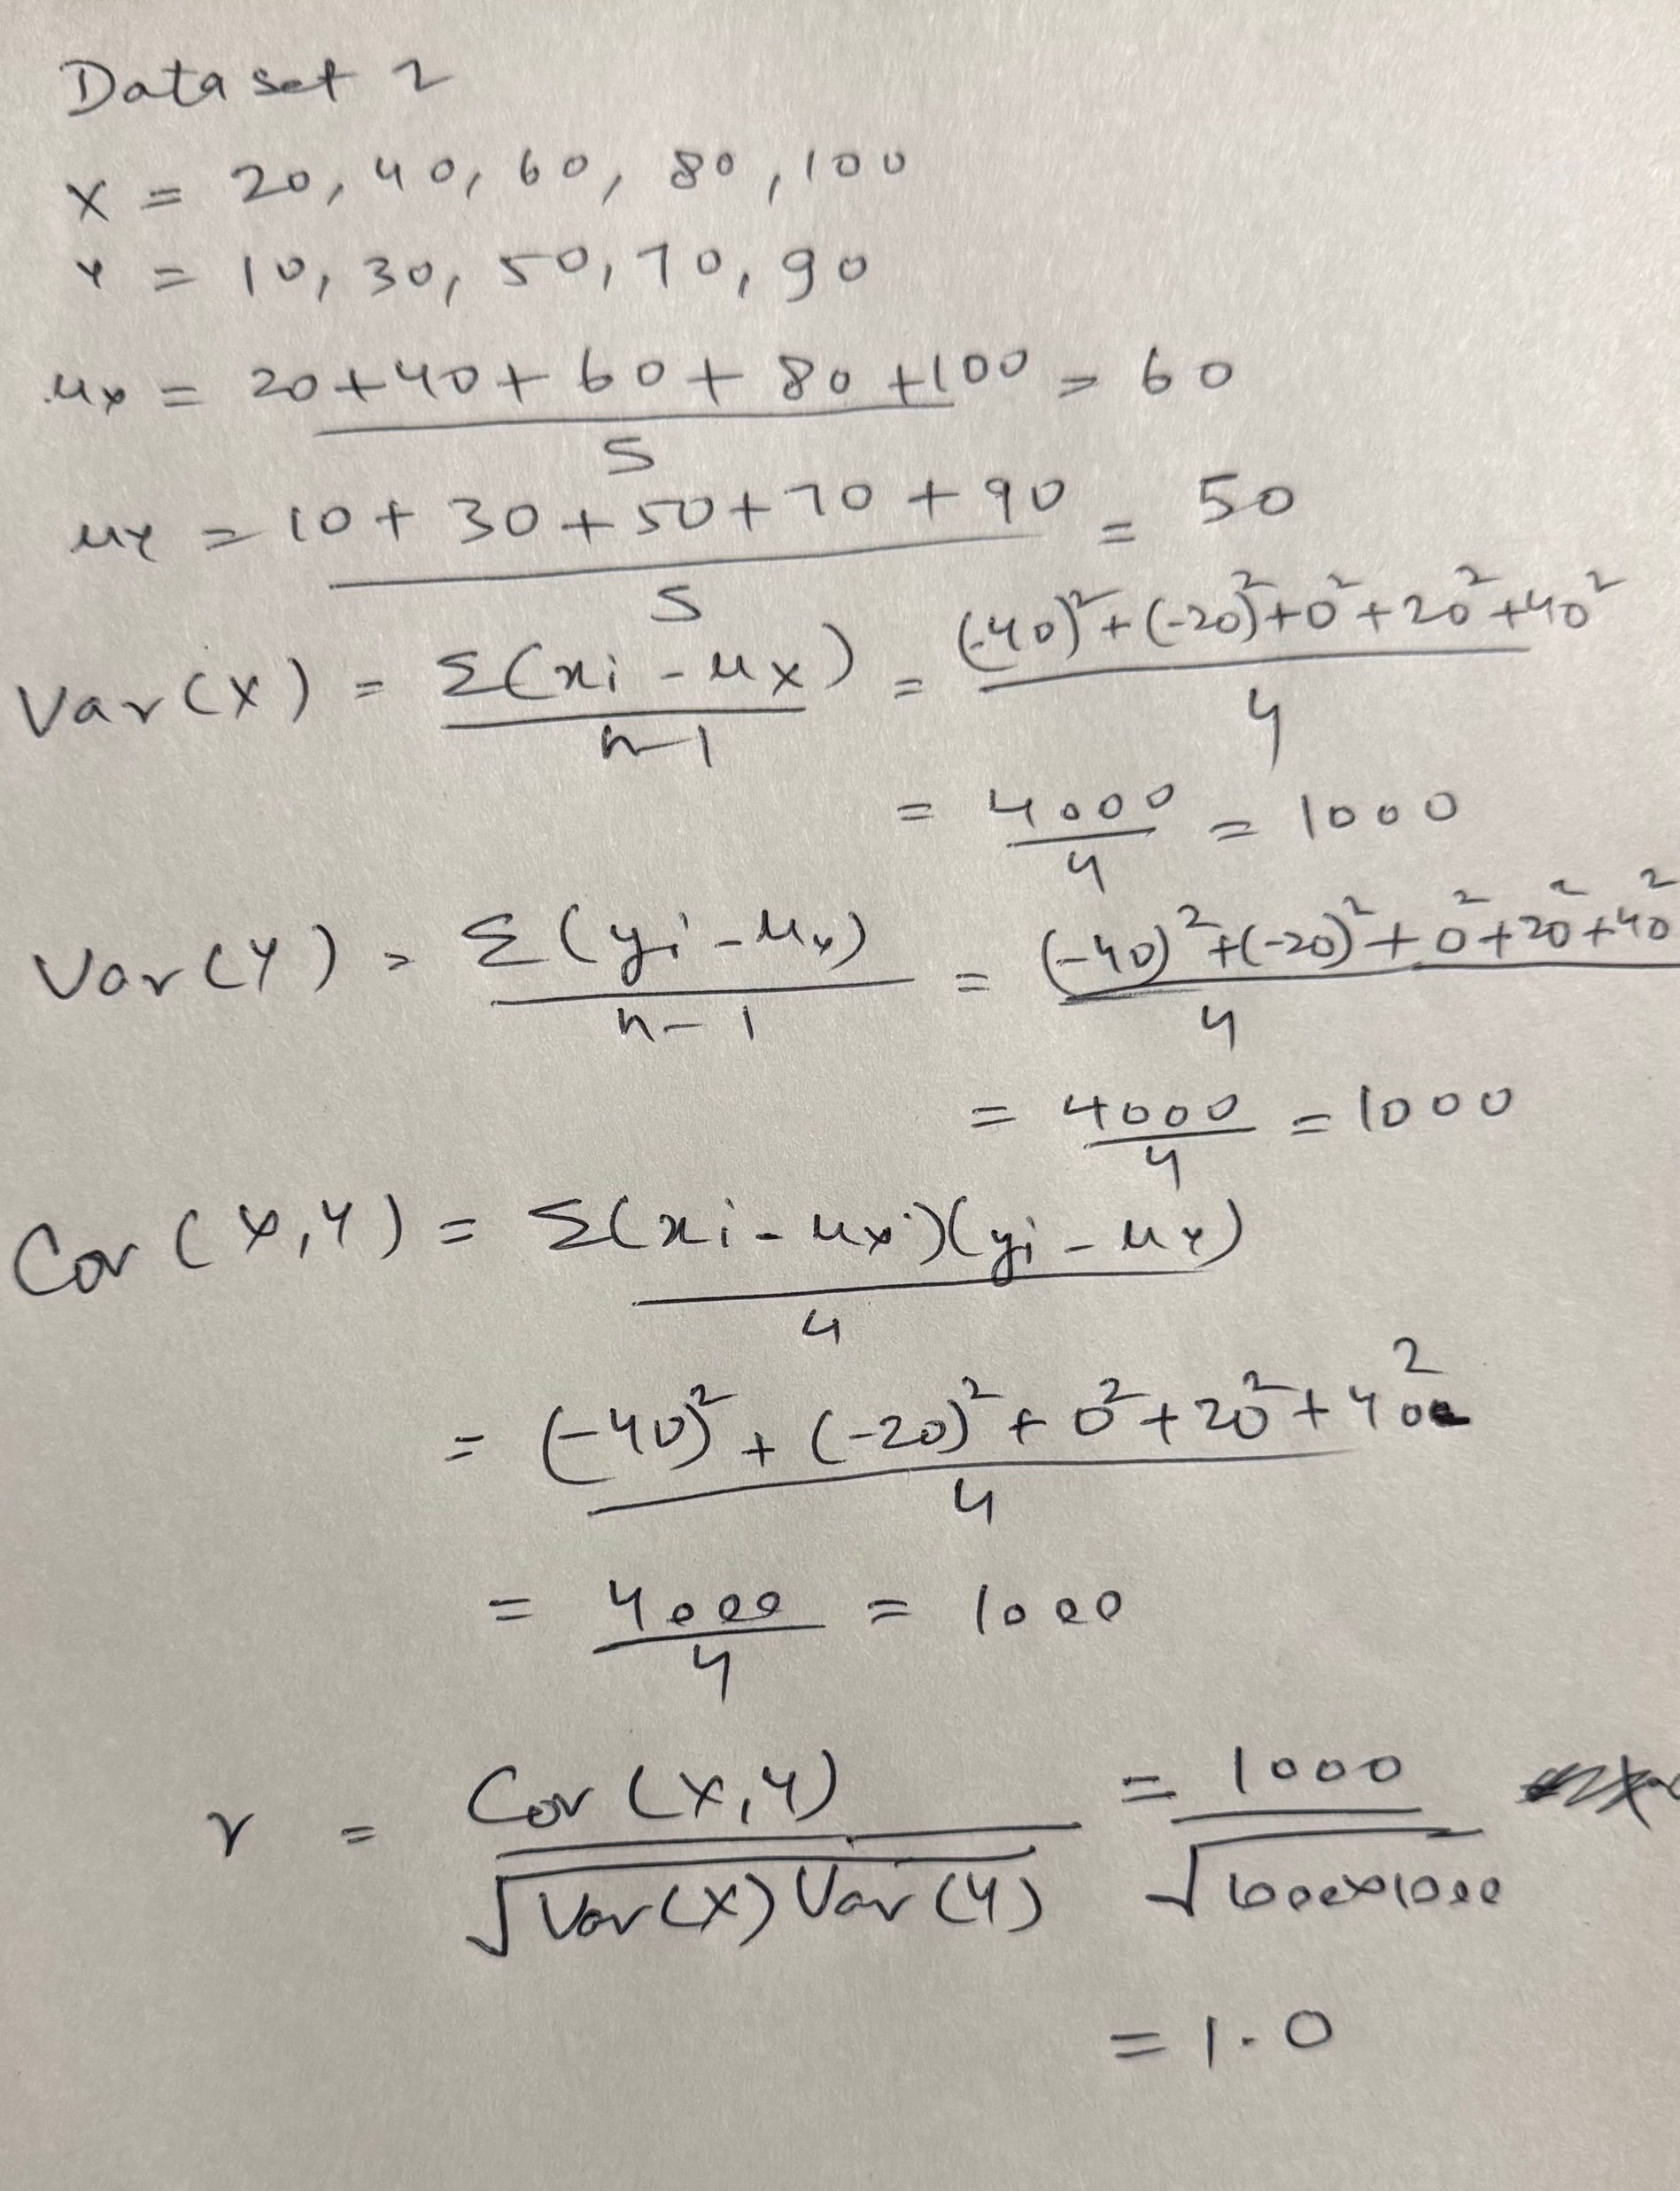 Data set 2
X = 20, 40, 60, 80, 100
Y = 10, 30, 50, 70, 90
μx = 20+40+60+80+100 = 60
5
μY = 10+30+50+70+90 = 50
5
Var(X) = Σ(xi - μx) = (-40)²+(-20)²+0²+20²+40²
n-1 4
= 4000 = 1000
4
Var(Y) = Σ(yi - μY) = (-40)²+(-20)²+0²+20²+40²
n-1 4
= 4000 = 1000
4
Cov(X,Y) = Σ(xi - μx)(yi - μY)
4
= (-40)²+(-20)²+0²+20²+40²
4
= 4000 = 1000
4
r = Cov(X,Y) = 1000
√Var(X)Var(Y) √1000×1000
= 1.0